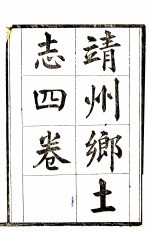 靖州鄉土
志四卷